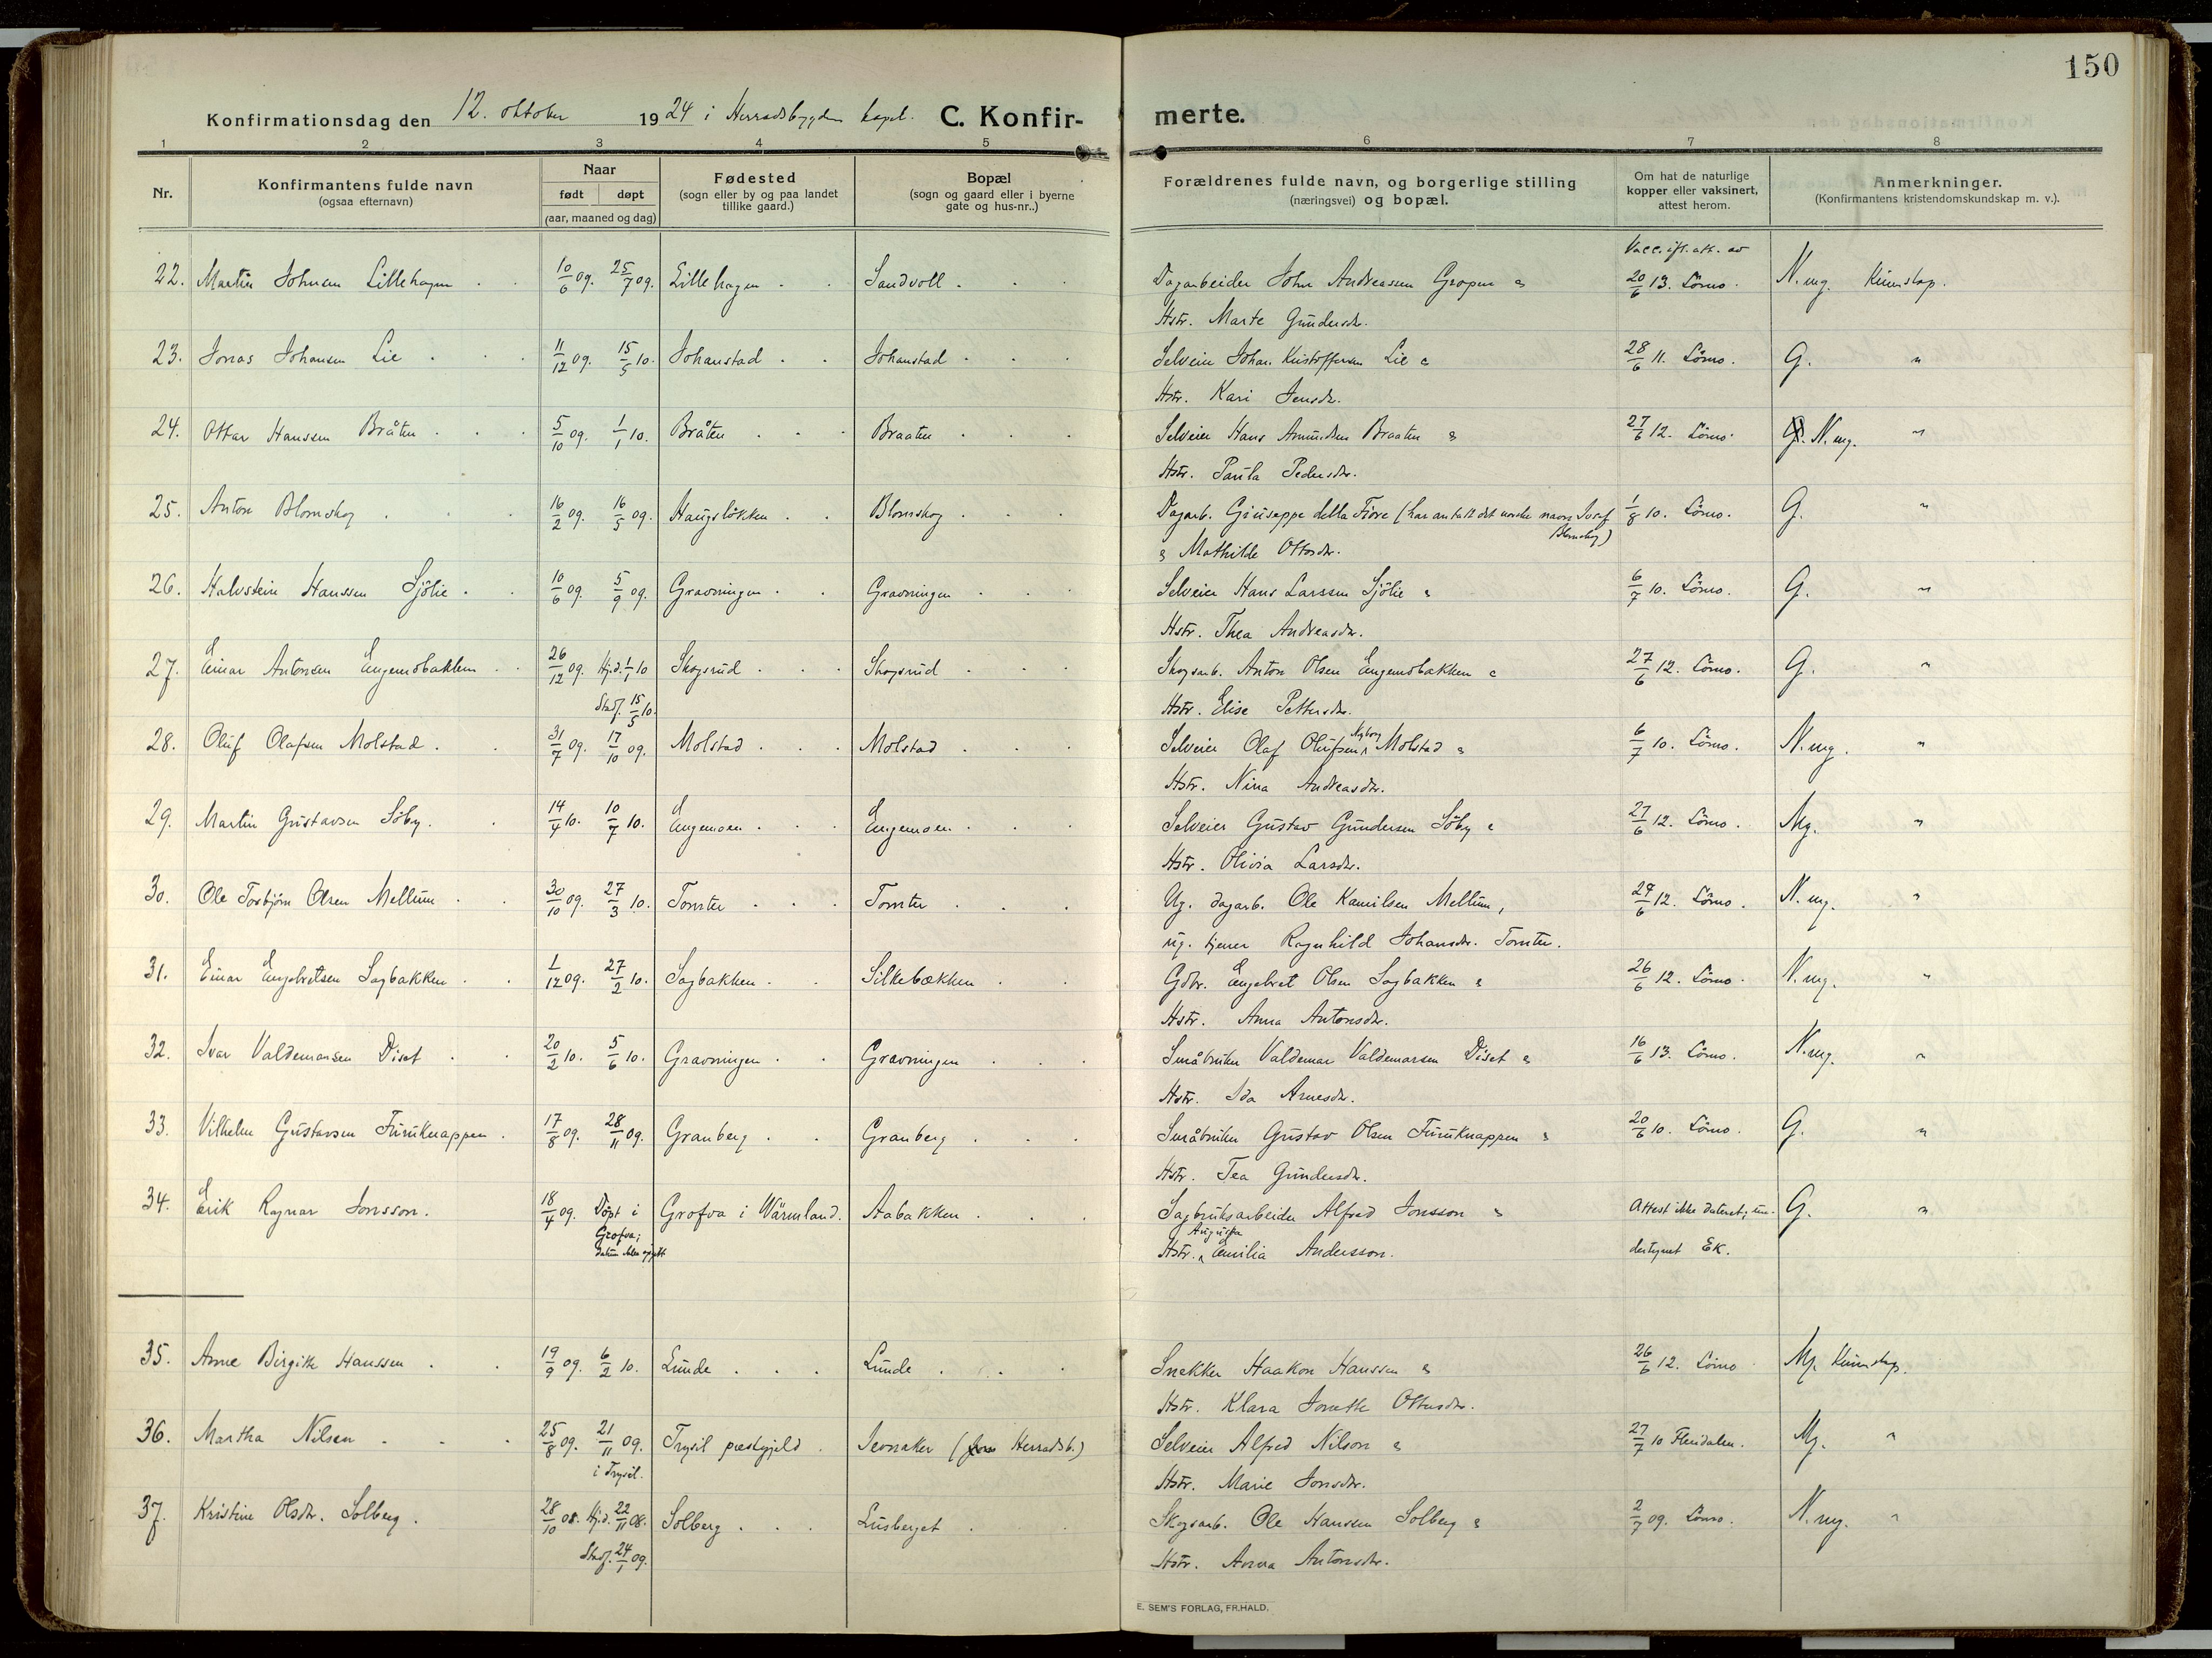 150
Konfirmationsdag den 12. oktober 1924 i Herradsbygden kapel. C. Konfir-
merte.
1 2 3 4 5 6 7 8
Nr.
Konfirmantens fulde navn
(ogsaa efternavn)
Naar
født døpt
(aar, maaned og dag)
Fødested
(sogn eller by og paa landet
tillike gaard.)
Bopæl
(sogn og gaard eller i byerne
gate og hus-nr..)
Forældrenes fulde navn, og borgerlige stilling
(næringsvei) og bopæl.
Om hat de naturlige
kopper eller vaksinert,
attest herom.
Anmerkninger.
(Konfirmantens kristendomskundskap m. v.).
Vacc. ifl. att. av
22. Martin Johnsen Lillehagen 10/6 09. 25/7 09. Lillehagen Sandvoll Dagarbeider John Andreassen Gropen & 20/6 13. Lömo. N. mg. Kunnskap.
Hstr. Marte Gundersdr.
23. Jonas Johansen Lie 11/12 09. 15/5 10. Johanstad Johanstad Selveier Johan Kristoffersen Lie & 28/6 11. Lömo. G. "
Hstr. Kari Jensdr.
24. Ottar Hanssen Bråten 5/10 09. 1/1 10. Bråten Braaten Selveier Hans Amundsen Braaten & 27/6 12. Lömo. N. mg. "
Hstr. Paula Pedersdr.
25. Anton Blomskog 16/2 09. 16/5 09. Haugslökken Blomskog Dagarb. Giuseppe della Fiore (har antatt det norske navn Josef 1/8 10. Lömo. G. "
Blomskog)
& Mathilde Ottosdr.
26. Halvstein Hanssen Sjölie 10/6 09. 5/9 09. Gravningen Gravningen Selveier Hans Larssen Sjölie & 6/7 10. Lömo. G. "
Hstr. Thea Andreasdr.
27. Einar Antonsen Engemobakken 26/12 09. Hj.d. 1/1 10 Skogsrud Skogsrud Skogsarb. Anton Olsen Engemobakken & 27/6 12. Lömo. G. "
Stadf. 15/5 10. Hstr. Elise Pettersdr.
28. Oluf Olafsen Molstad 31/7 09. 17/10 09. Molstad Molstad Selveier Olaf Olufsen Nyborg Molstad & 6/7 10. Lömo. N. mg. "
Hstr. Nina Andreasdr.
29. Martin Gustavsen Söby 14/4 10. 10/7 10. Engemoen Engemoen Selveier Gustav Gundersen Söby & 27/6 12. Lömo. Mg. "
Hstr. Olivia Larsdr.
30. Ole Torbjörn Olsen Mellum 30/10 09. 27/3 10. Tomter Tomter Ug. dagarb. Ole Kamilsen Mellum, 27/6 12. Lömo. N. mg. "
ug. tjener Ragnhild Johansdr. Tomter.
31. Einar Engebretsen Sagbakken 1/12 09. 27/2 10. Sagbakken Silkebækken Gdbr. Engebret Olsen Sagbakken & 26/6 12. Lömo. N. mg. "
Hstr. Anna Antonsdr.
32. Ivar Valdemarsen Diset 20/2 10. 5/6 10. Gravningen Gravningen Småbruker Valdemar Valdemarsen Diset & 16/6 13. Lömo. N. mg. "
Hstr. Ida Arnesdr.
33. Vilhelm Gustavsen Furuknappen 17/8 09. 28/11 09. Granberg Granberg Småbruker Gustav Olsen Furuknappen & 20/6 10. Lömo. G. "
Hstr. Tea Gundersdr.
34. Erik Ragnar Jonsson. 18/4 09. Döpt i Grofva i Wärmland. Aabakken Sagbruksarbeider Alfred Jonsson & Attest ikke datert; un- G. "
Grofva;
datum ikke opgitt
Hstr. Augusta Emilia Andersson. dertegnet EK.
35. Anne Birgitte Hanssen 19/9 09. 6/2 10. Lunde Lunde Snekker Haakon Hanssen & 26/6 12. Lömo Mg. Kunnskap.
Hstr. Klara Josette Ottersdr.
36. Martha Nilsen 25/8 09. 21/11 09. Trysil prestegjeld. Sevnaker (Herradsb.) Selveier Alfred Nilson & 27/7 10 Flendalen. Mg. "
i Trysil. Hstr. Marie Jonsdr.
37. Kristine Olsdr. Solberg. 28/10 08. Hj.d. 22/11 08. Solberg Lusberget Skogsarb. Ole Hanssen Solberg & 2/7 09. Lömo. N. mg. "
Stadf. 24/1 09. Hstr. Anna Antonsdr.
E. SEM'S FORLAG, FR.HALD.